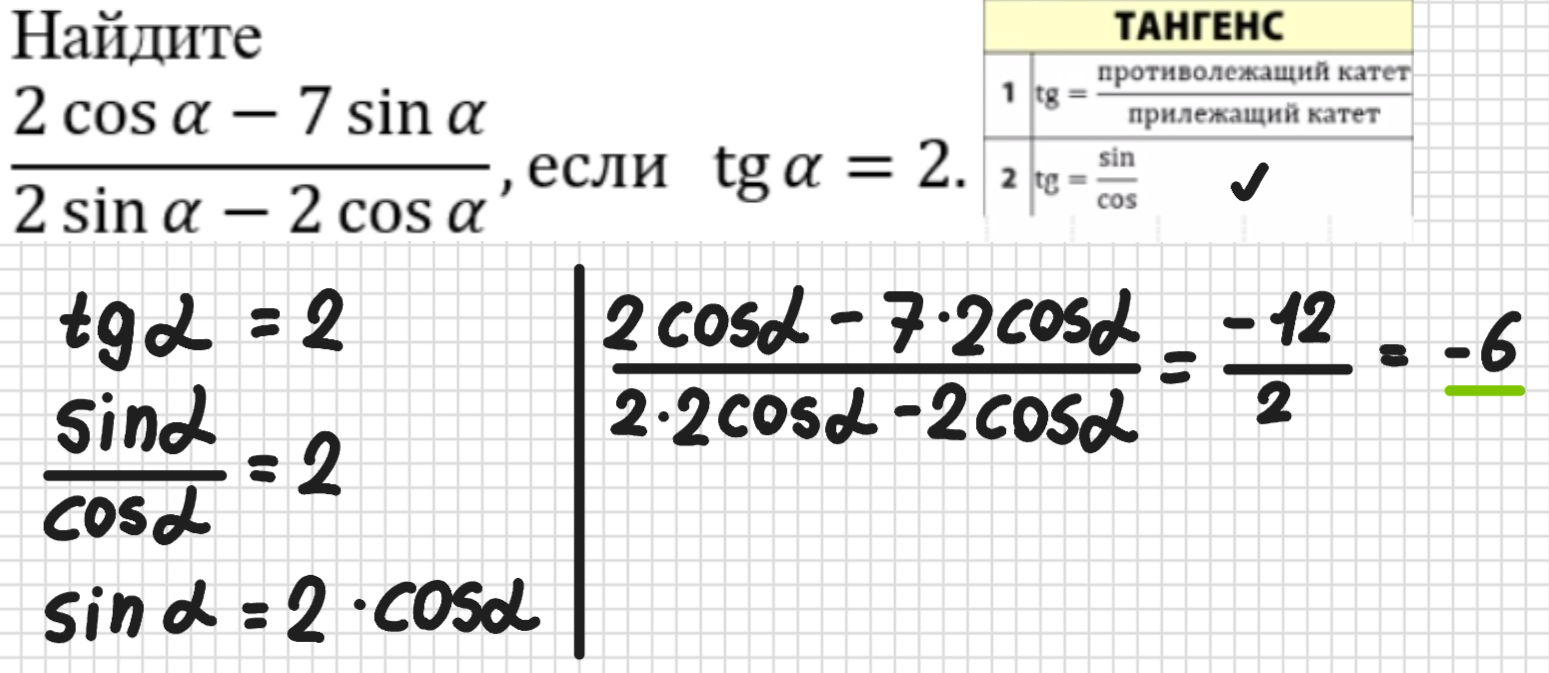 Найдите
2 cos α − 7 sin α
2 sin α − 2 cos α
, если tg α = 2.
ТАНГЕНС
1 tg = противолежащий катет
прилежащий катет
2 tg = sin
cos
✓
tgα = 2
sinα
cosα
= 2
sin α = 2 · cosα
2cosα − 7·2cosα
2·2cosα − 2cosα
= −12
2
= −6